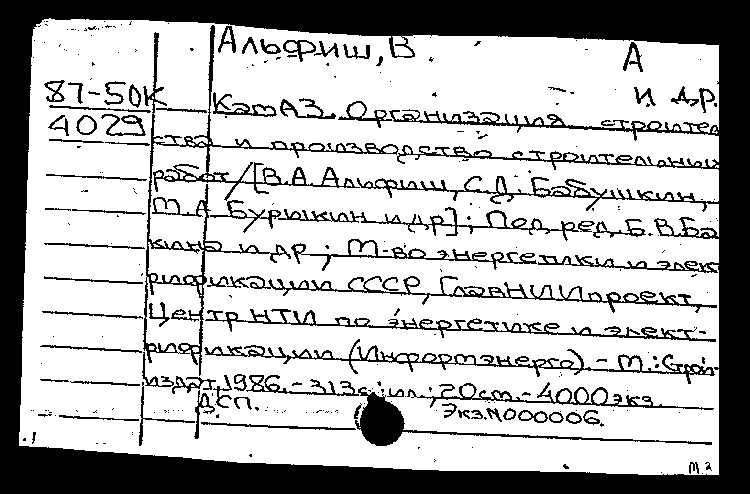 Альфиш, В
А
87-50К и др.
4029 КамАЗ. Организация строитель
ства и производство строительных
работ / [В.А. Альфиш, С.Д. Бабушкин,
М.А. Бурышкин и др]; Под ред. Б.В. Ба
кина и др; М-во энергетики и элек
рификации СССР, ГлавНИИпроект,
Центр НТИ по энергетике и элект-
рификации (Информэнерго). - М.: Строй
издат, 1986. - 313с: ил.; 20см. - 4000 экз.
ДСП. Экз. N000006.
м.2